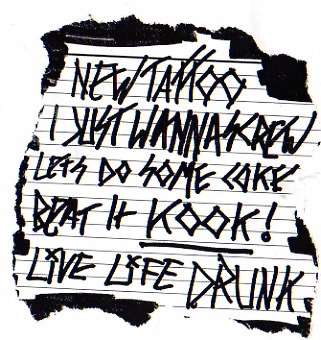 NEW TATTOO
I JUST WANNA SCREW
LETS DO SOME COKE
BEAT It KOOK!
LiVE LiFE DRUNK